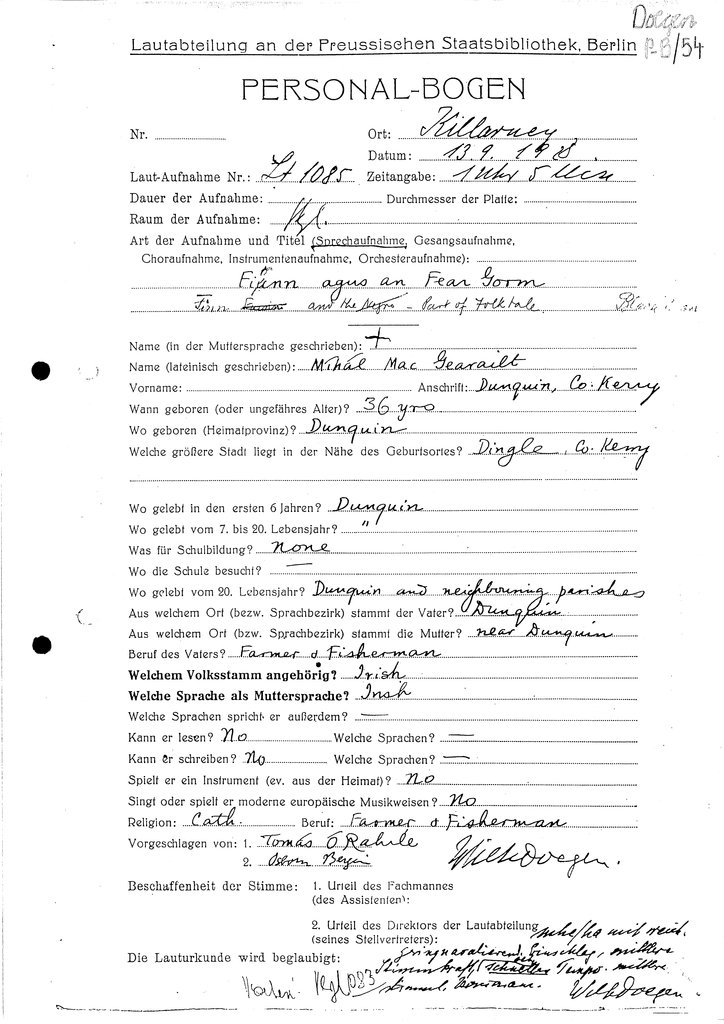 Doegen
Lautabteilung an der Preussischen Staatsbibliothek, Berlin P-B/54
PERSONAL-BOGEN
Nr. Ort: Killarney
Datum: 13.9.1928.
Laut-Aufnahme Nr.: Lt 1085 Zeitangabe: 1 Uhr 5 Min
Dauer der Aufnahme: Durchmesser der Platte:
Raum der Aufnahme:
Art der Aufnahme und Titel (Sprechaufnahme, Gesangsaufnahme,
Choraufnahme, Instrumentenaufnahme, Orchesteraufnahme):
Fionn agus an Fear Gorm
Finn and the Negro - Part of Folktale.
Name (in der Muttersprache geschrieben): +
Name (lateinisch geschrieben): Mīhál Mac Gearailt
Vorname: Anschrift: Dunquin, Co. Kerry
Wann geboren (oder ungefähres Alter)? 36 yrs
Wo geboren (Heimatprovinz)? Dunquin
Welche größere Stadt liegt in der Nähe des Geburtsortes? Dingle, Co. Kerry
Wo gelebt in den ersten 6 Jahren? Dunquin
Wo gelebt vom 7. bis 20. Lebensjahr? "
Was für Schulbildung? None
Wo die Schule besucht? —
Wo gelebt vom 20. Lebensjahr? Dunquin and neighbouring parishes
Aus welchem Ort (bezw. Sprachbezirk) stammt der Vater? Dunquin
Aus welchem Ort (bzw. Sprachbezirk) stammt die Mutter? near Dunquin
Beruf des Vaters? Farmer & Fisherman
Welchem Volksstamm angehörig? Irish
Welche Sprache als Muttersprache? Irish
Welche Sprachen spricht er außerdem? —
Kann er lesen? No Welche Sprachen? —
Kann er schreiben? No Welche Sprachen? —
Spielt er ein Instrument (ev. aus der Heimat)? No
Singt oder spielt er moderne europäische Musikweisen? No
Religion: Cath. Beruf: Farmer & Fisherman
Vorgeschlagen von: 1. Tomás Ó Rahile
2. Osborn Bergin Wilh Doegen.
Beschaffenheit der Stimme: 1. Urteil des Fachmannes
(des Assistenten):
2. Urteil des Direktors der Lautabteilung
(seines Stellvertreters):
Einschlag, mittlere
Die Lauturkunde wird beglaubigt: Stimmkraft, Tempo. mittlere
Wilh Doegen.